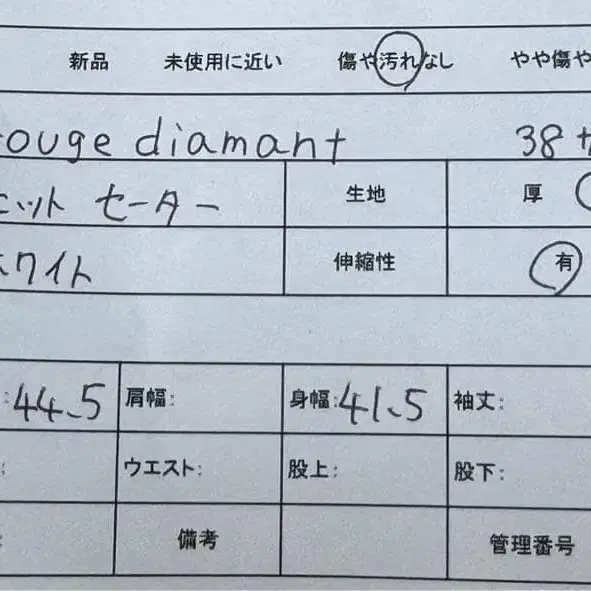 新品 未使用に近い 傷や汚れなし やや傷や
ouge diamant 38
ニット セーター 生地 厚
ホワイト 伸縮性 有
: 44.5 肩幅: 身幅: 41.5 袖丈:
: ウエスト: 股上: 股下:
: 備考 管理番号